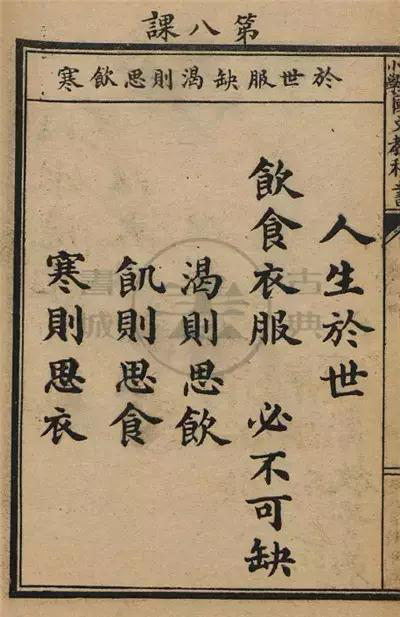 第八課
於世服缺渴則思飲寒
人生於世
飲食衣服 必不可缺
渴則思飲
飢則思食
寒則思衣
小學國文教科書
古典書城